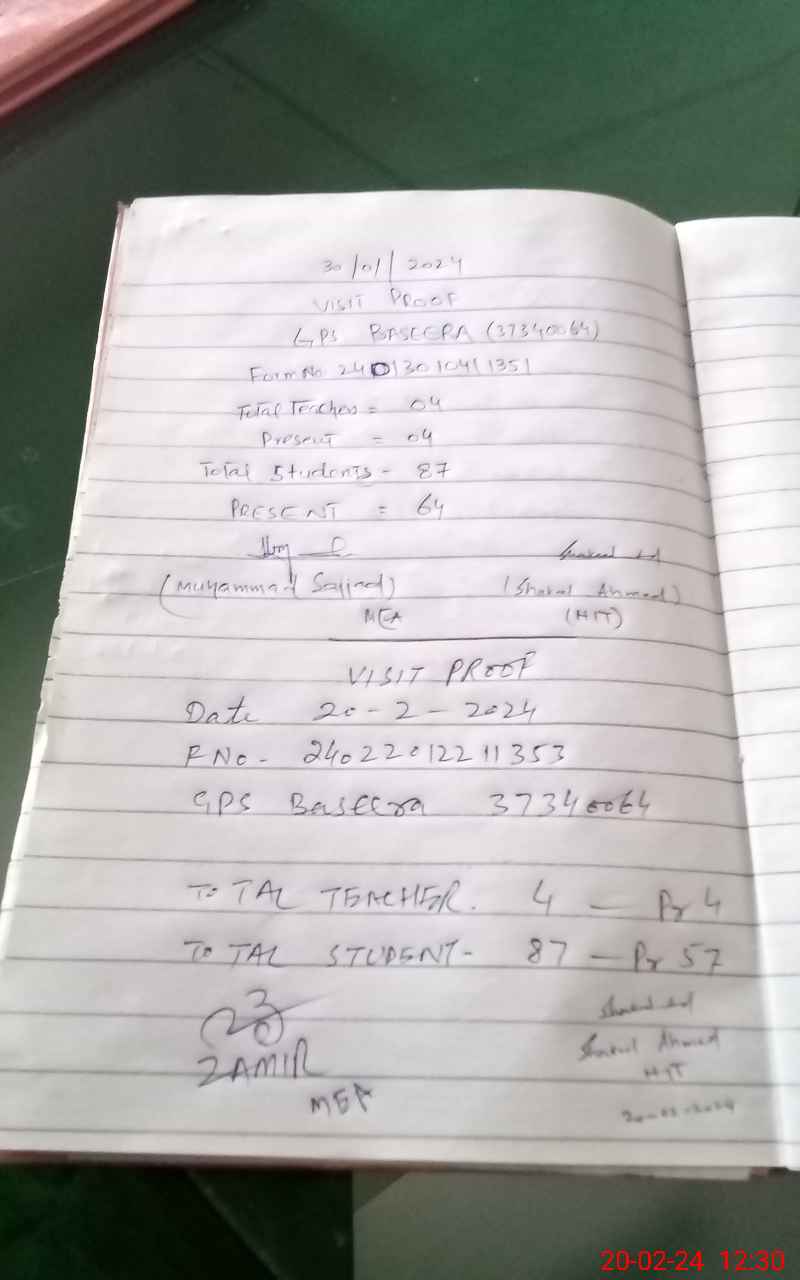 30/01/2024
VISIT PROOF
GPS BASEERA (37340064)
Form No 24013010411351
Total Teacher = 04
Present = 04
Total Students - 87
PRESENT = 64
(Muhammad Sajjad) (Shakeel Ahmed)
MEA (HT)
VISIT PROOF
Date 20-2-2024
F No- 24022012211353
GPS Baseera 37340064
TOTAL TEACHER. 4 — Pr 4
TOTAL STUDENT- 87 — Pr 57
ZAMIR Shakeel Ahmed
MEA HT
20-02-2024
20-02-24 12:30